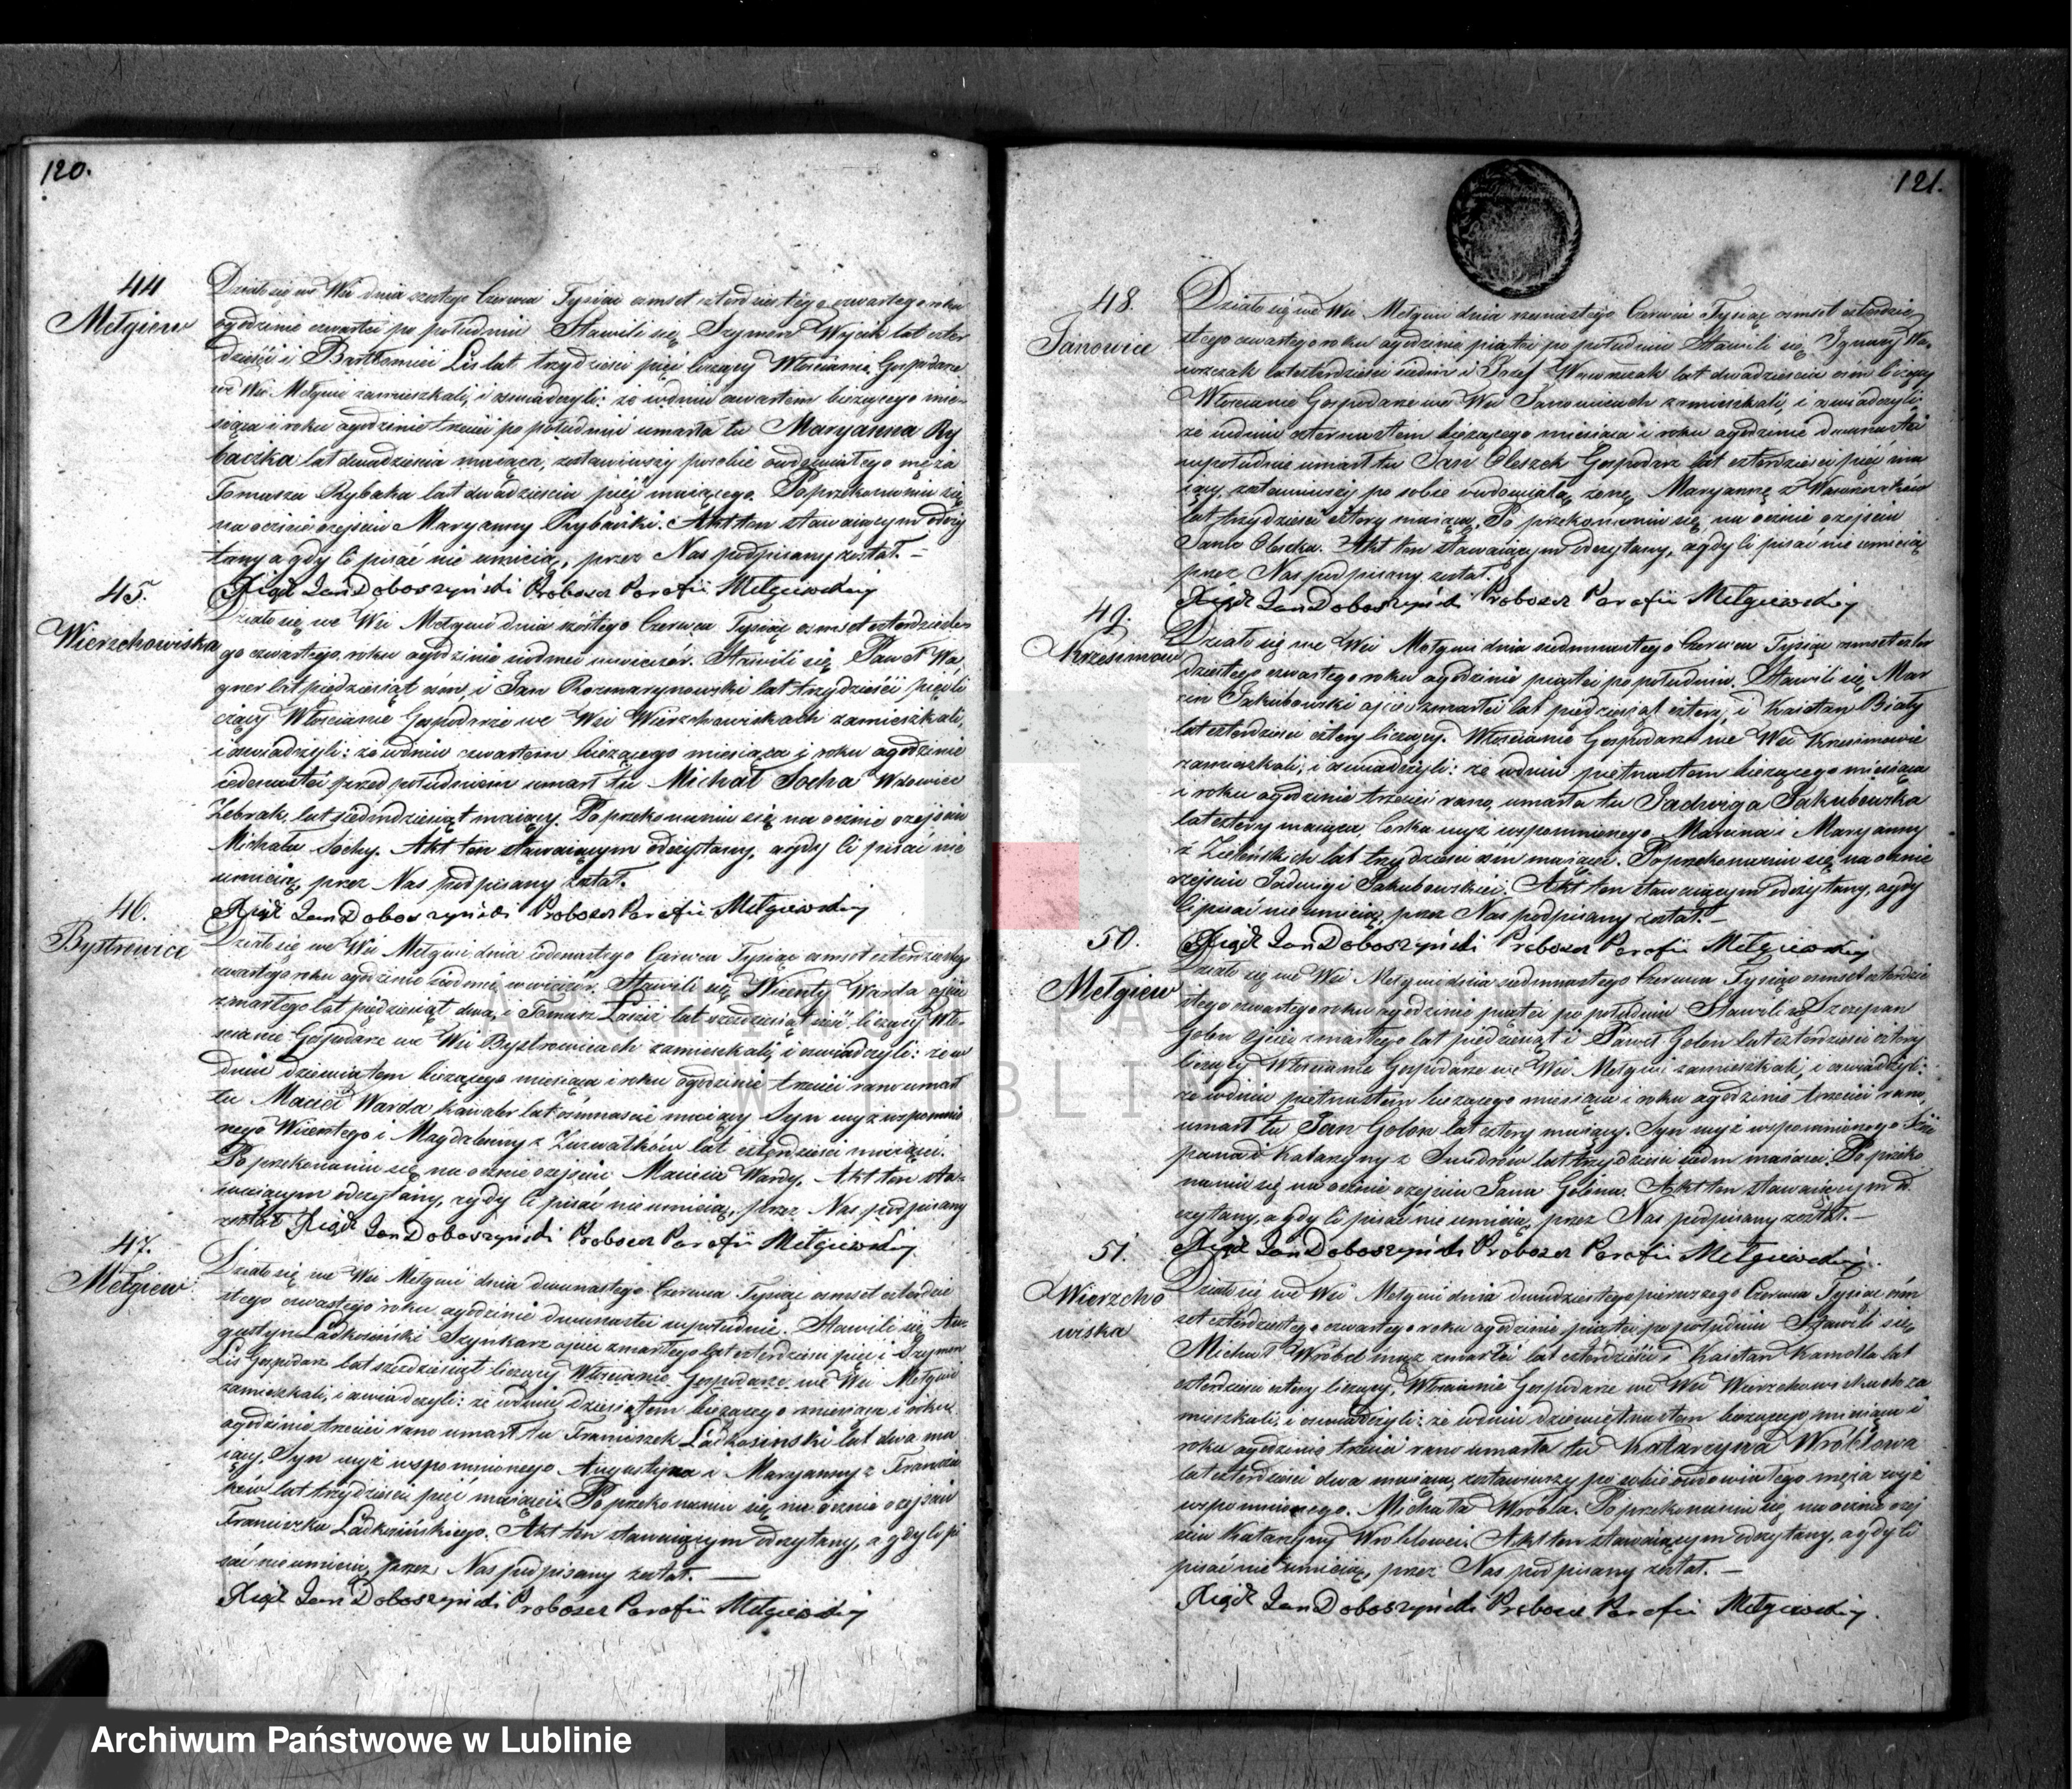 120.
44
Mełgiew
Działo się we Wsi dnia szostego Czerwca Tysiąc osmset czterdziestego czwartego roku
ogodzinie czwartéi po południu Stawili się Szymon Wojcik lat czter
dzieści i Bartłomiéi Lis lat trzydzieści pięć liczący Włościanie Gospodarze
we Wsi Mełgwi zamieszkali, i oswiadczyli: że wdniu czwartem bieżącego mie-
siąca i roku ogodzinie trzeciéi po południu umarła tu Maryanna Ry
baczka lat dwadzieścia maiąca, zostawiwszy posobie owdowiałego męża
Tomasza Rybaka lat dwadzieścia pięć maiącego. Poprzekonaniu się
naocznie ozejściu Maryanny Rybaczki. Akt ten stawaiącym odczy
tany a gdy ci pisać nie umieią, przez Nas podpisany został. –
Xiądz Jan Doboszyński Proboszcz Parafii Mełgiewskiéy
45.
Wierzchowiska
Działo się we Wsi Mełgwi dnia szóstego Czerwca Tysiąc osmset czterdzieste
go czwartego roku ogodzinie siodméi wwieczór. Stawili się Paweł Wa
gner lat piędziesiąt osm, i Jan Rozmarynowski lat trzydzieści pięć li
czący Włościanie Gospodarze we Wsi Wierzchowiskach zamieszkali,
i oswiadczyli: że wdniu czwartem bieżącego miesiąca i roku ogodzinie
iedenastéi przed południem umarł tu Michał Socha Wdowiec
Żebrak, lat siedmdziesiąt maiący. Po przekonaniu się na ocznie ozejściu
Michała Sochy. Akt ten stawaiącym odczytany, agdy ci pisać nie
umieią przez Nas podpisany został.
Xiądz Jan Doboszyński Proboszcz Parafii Mełgiewskiéy
46.
Bystrowice
Działo się we Wsi Mełgwi dnia iedenastego Czerwca Tysiąc osmset czterdziestego
czwartego roku ogodzinie siodméi wwieczór. Stawili się Wicenty Warda oyciec
zmarłego lat piędziesiąt dwa, i Tomasz lat szezdziesiąt liczący Wło-
scianie Gospodarze we Wsi Bystrowicach zamieszkali, i oswiadczyli: że w
dniu dziewiątem bieżącego miesiąca i roku ogodzinie trzeciéi rano umarł
tu Maciéi Warda kawaler lat ośmnascie maiący Syn wyż wspomnio
nego Wicentego i Magdaleny z lat czterdzieści maiącéi.
Po przekonaniu się na ocznie ozejściu Macieia Wardy, Akt ten sta-
waiącym odczytany, agdy ci pisać nie umieią, przez Nas podpisany
został Xiądz Jan Doboszyński Proboszcz Parafii Mełgiewskiéy
47.
Mełgiew
Działo się we Wsi Mełgwi dnia dwunastego Czerwca Tysiąc osmset czterdzie
stego czwartego roku ogodzinie dwunastéi wpołudnie. Stawili się Au-
gustyn Szynkarz oyciec zmarłego lat czterdzieści pięć i Szymon
Lis Gospodarz lat szezdziesiąt liczący Włościanie Gospodarze we Wsi Mełgwi
zamieszkali, i oswiadczyli: że wdniu dziesiątem bieżącego miesiąca i roku
ogodzinie trzeciéi rano umarł tu Franciszek lat dwa ma
iący, Syn wyż wspomnionego Augustyna i Maryanny z
lat trzydzieści pięć maiącéi Po przekonaniu się na ocznie ozejściu
Franciszka Akt ten stawaiącym odczytany, a gdy ci pi
sać nie umieią, przez Nas podpisany został. —
Xiądz Jan Doboszyński Proboszcz Parafii Mełgiewskiéy
121.
48.
Janowice
Działo się we Wsi Mełgwi dnia Czerwca Tysiąc osmset czterdzie
stego czwartego roku ogodzinie piątéi po południu Stawili się Ignacy Wa-
wrzczak lat czterdzieści siedm i Jozef Wawrzczak lat dwadzieścia osm liczący
Włościanie Gospodarze we Wsi Janowicach zamieszkali, i oswiadczyli,
że wdniu czternastem bieżącego miesiąca i roku ogodzinie dwunastéi
wpołudnie umarł tu Jan Oleszek Gospodarz lat czterdzieści pięć ma
iący, zostawiwszy po sobie owdowiałą żonę Maryannę z
lat trzydzieści cztery maiącą, Po przekonaniu się na ocznie ozejściu
Jana Oleszka. Akt ten stawaiącym odczytany, agdy ci pisać nie umieią
przez Nas podpisany został.
Xiądz Jan Doboszyński Proboszcz Parafii Mełgiewskiéy
49.
Krzesimow
Działo się we Wsi Mełgwi dnia siedmnastego Czerwca Tysiąc osmset czter
dziestego czwartego roku ogodzinie piątéi po południu. Stawili się Mar
cin Jakubowski oyciec zmarłéi lat piędziesiąt cztery, i Kaietan Biały
lat czterdzieści cztery liczący. Włościanie Gospodarze we Wsi Krzesimowie
zamieszkali; i oswiadczyli: że wdniu piętnastem bieżącego miesiąca
i roku ogodzinie trzeciéi rano, umarła tu Jadwiga Jakubowska
lat cztery maiąca, Corka wyż wspomnionego Marcina i Maryanny
z Zielińskich lat trzydzieści osm maiącéi. Po przekonaniu się na ocznie
ozejściu Jadwigi Jakubowskiéi. Akt ten stawaiącym odczytany, agdy
ci pisać nie umieią, przez Nas podpisany został. —
Xiądz Jan Doboszyński Proboszcz Parafii Mełgiewskiéy
50.
Mełgiew
Działo się we Wsi Mełgwi dnia siedmnastego Czerwca Tysiąc osmset czterdzie
stego czwartego roku ogodzinie piątéi po południu Stawili się Szczepan
Golon oyciec zmarłego lat piędziesiąt i Paweł Golon lat czterdzieści cztery
liczący Włościanie Gospodarze we Wsi Mełgwi zamieszkali, i oswiadczyli:
że wdniu piętnastem bieżącego miesiąca i roku ogodzinie trzeciéi rano,
umarł tu Jan Golon lat cztery maiący. Syn wyż wspomnionego Szcze
pana i Katarzyny z lat trzydzieści siedm maiącéi. Po przeko
naniu się na ocznie ozejściu Jana Golona. Akt ten stawaiącym od
czytany, a gdy ci pisać nie umieią, przez Nas podpisany został. —
Xiądz Jan Doboszyński Proboszcz Parafii Mełgiewskiéy.
51.
Wierzcho
wiska
Działo się we Wsi Mełgwi dnia dwudziestego pierwszego Czerwca Tysiąc osm
set czterdziestego czwartego roku ogodzinie piątéi po południu Stawili się
Michał Wróbel mąż zmarłéi lat czterdzieści i Kaietan Kamoła lat
czterdzieści cztery liczący, Włościanie Gospodarze we Wsi Wierzchowiskach za
mieszkali, i oswiadczyli: że wdniu dziewiętnastem bieżącego miesiąca i
roku ogodzinie trzeciéi rano umarła tu Katarzyna Wróblowa
lat czterdzieści dwa maiąca, zostawiwszy po sobie owdowiałego męża wyż
wspomnionego. Michała Wróbla. Po przekonaniu się na ocznie ozej
ściu Katarzyny Wroblowéi. Akt ten stawaiącym odczytany, a gdy ci
pisać nie umieią, przez Nas podpisany został. —
Xiądz Jan Doboszyński Proboszcz Parafii Mełgiewskiéy.
ARCHIWUM PAŃSTWOWE
W LUBLINIE
Archiwum Państwowe w Lublinie